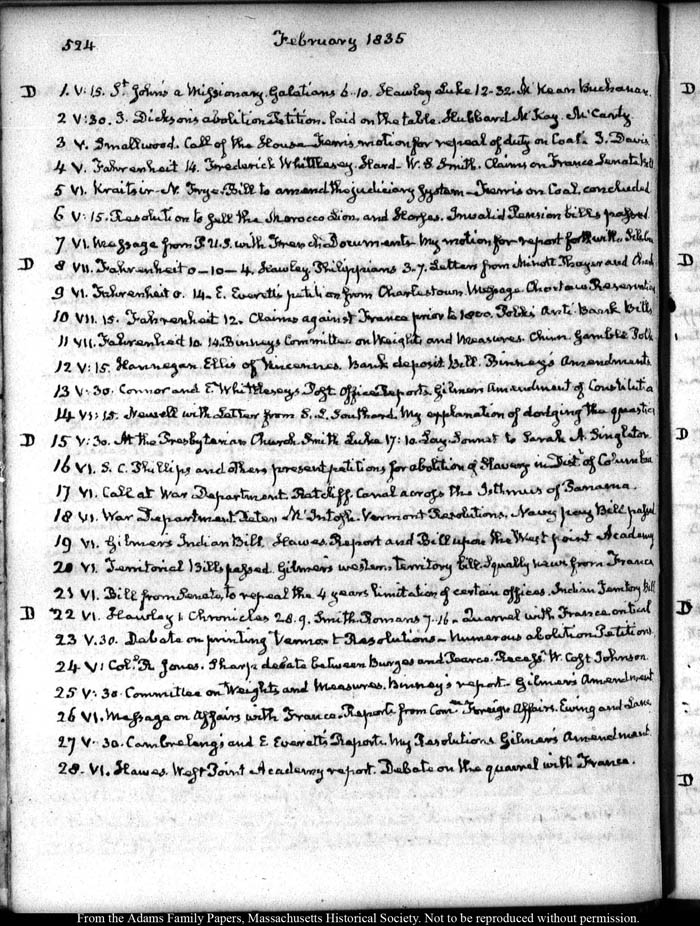 524 February 1835
D 1. V: 15. St. John's a Missionary. Galatians 6. 10. Hawley Luke 12-32. McKean Buchanan.
2 V: 30. J. Dickson's abolition Petition. laid on the table. Hubbard McKay. McCarty.
3 V. Smallwood. Call of the House Ferris motion for repeal of duty on Coal. J. Davis
4 V. Fahrenheit 14. Frederick Whittlesey. Hard- W. S Smith. Claims on France Senate Bill
5 VI. Kraitsir- N. Frye. Bill to amend the judiciary System- Ferris on Coal. concluded
6 V: 15. Resolution to sell the Morocco Lion, and Horses. Invalid Pension bills passed.
7 VI. Message from P. U. S. with French Documents- My motion for report forthwith.
D 8 VII. Fahrenheit 0-10-4. Hawley Philippians 3-7. Letters from Minott Thayer and
9 VI. Fahrenheit 0. 14- E. Everett's petition from Charlestown. Message. Choctaw Reservation
10 VII. 15. Fahrenheit 12. Claims against France prior to 1800. Polk's Anti Bank Bills
11 VII. Fahrenheit 10. 14. Binney's Committee on Weights and Measures. Chinn. Gamble Polk
12 V: 15. Hannegan. Ellis of Vincennes. Bank deposit Bill. Binney's Amendments
13 V: 30. Connor and E Whittlesey's Post Office Reports. Gilmer's Amendment of Constitutio
14 VI: 15. Newell with Letter from S. L. Southard. My explanation of dodging the question
D 15 V: 30. At the Presbyterian Church. Smith Luke 17: 10. Lay Sonnet to Sarah A. Singleton
16 VI. S. C. Phillips and others present petitions for abolition of Slavery in Dist. of Columbia
17 VI. Call at War Department. Ratcliff. Canal across the Isthmus of Panama.
18 VI. War Department. McIntosh. Vermont Resolutions. Navy pay Bill passed
19 VI. Gilmer's Indian Bill. Hawes. Report and Bill upon the West point Academy
20 VI. Territorial Bills passed. Gilmer's western territory bill. Squally news from France
21 VI. Bill from Senate, to repeal the 4 years limitation of certain offices. Indian Territory Bill
D 22 VI. Hawley 1. Chronicles 28. 9. Smith. Romans 7. 16- Quarrel with France. critical
23 V. 30. Debate on printing Vermont Resolutions- Numerous abolition Petitions.
24 V: Col. R Jones. Sharp debate between Burges and Pearce. Recess. W. Cost Johnson.
25 V: 30. Committee on Weights and Measures. Binney's report. Gilmer's Amendment
26 VI. Message on Affairs with France. Reports from Comee. Foreign Affairs. Ewing and Lane
27 V: 30. Cambreleng's and E Everett's Reports. My Resolutions Gilmer's Amendment.
28. VI. Hawes. West Point Academy report. Debate on the quarrel with France.
D
D
D
D
From the Adams Family Papers, Massachusetts Historical Society. Not to be reproduced without permission.